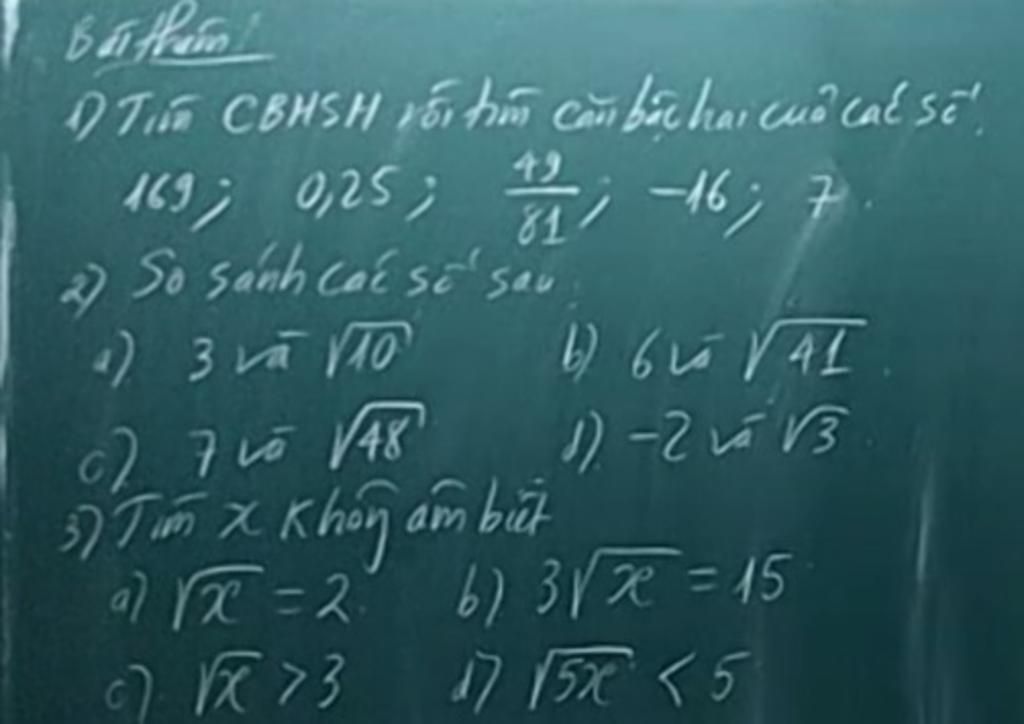 Bài thêm!
1) Tìm CBHSH rồi tìm căn bậc hai của các số:
169; 0,25; 49/81; -16; 7.
2) So sánh các số sau:
a) 3 và √10 b) 6 và √41.
c) 7 và √48 d) -2 và √3.
3) Tìm x không âm biết
a) √x = 2. b) 3√x = 15
c) √x > 3 d) √5x < 5